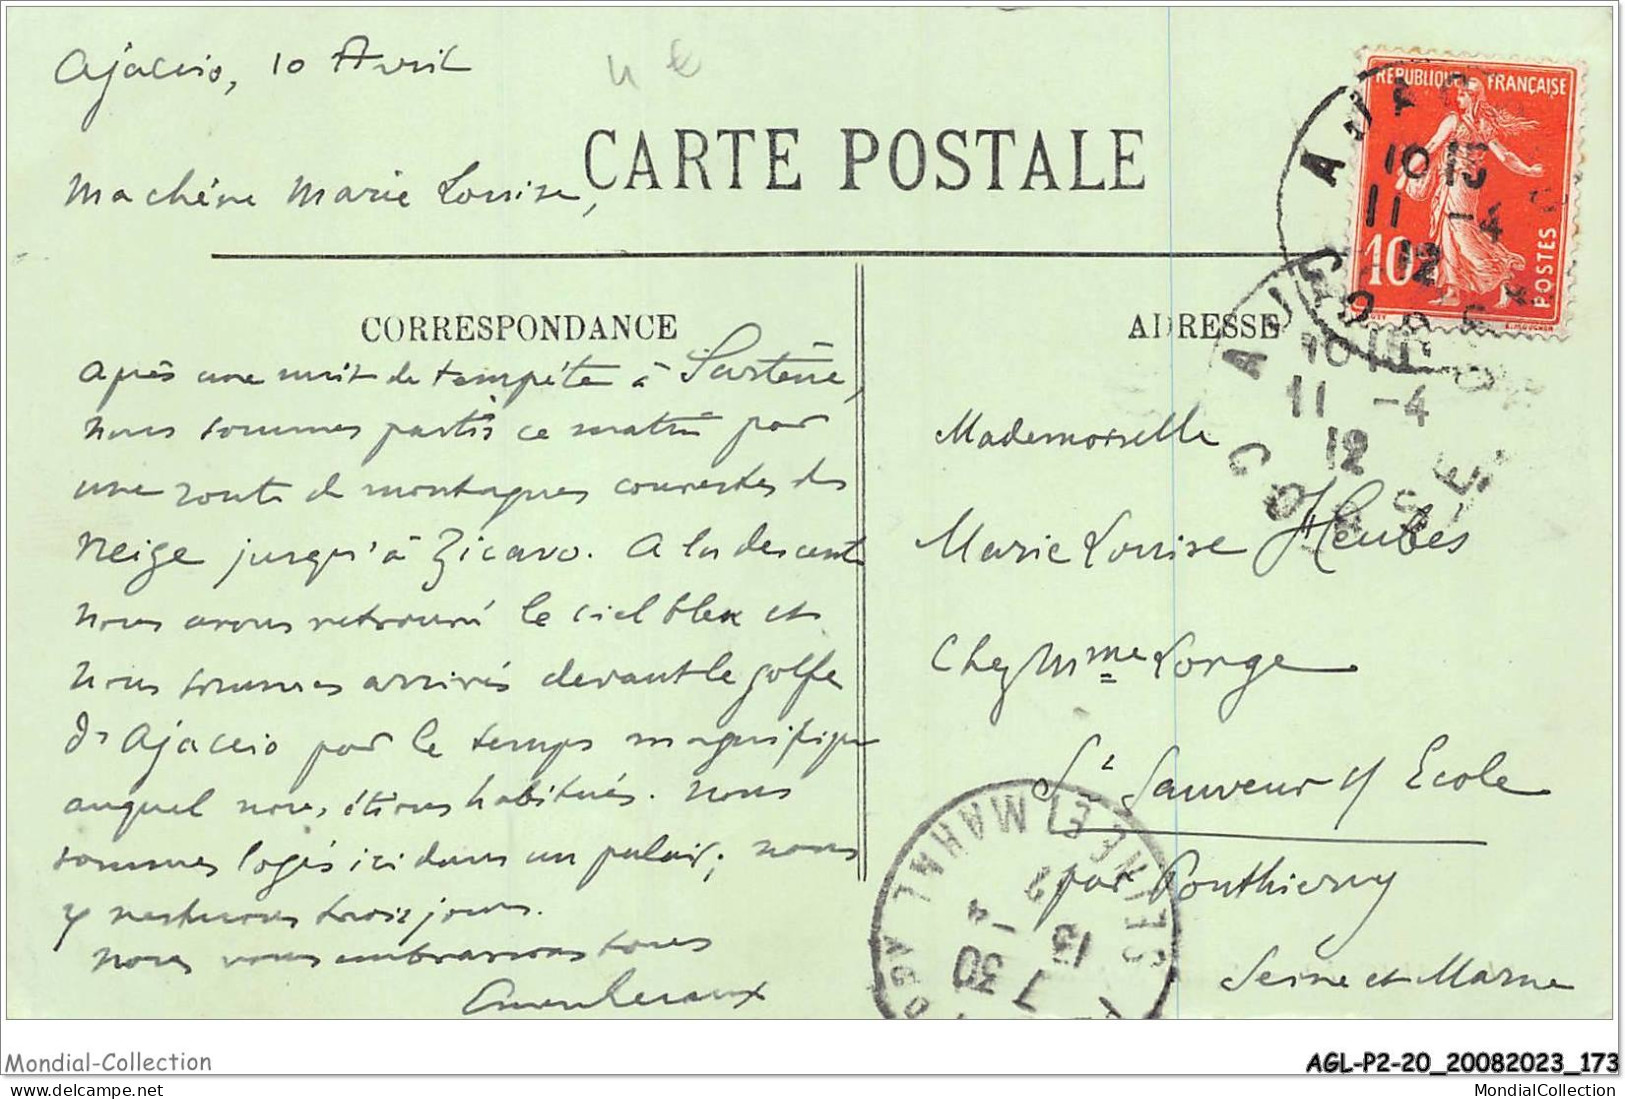 Ajaccio, 10 Avril
4 €
CARTE POSTALE
Ma chère Marie Louise,
CORRESPONDANCE
Après une nuit de tempête à Sartène,
nous sommes partis ce matin par
une route de montagnes couvertes de
neige jusqu'à Zicavo. A la descente
nous avons retrouvé le ciel bleu et
nous sommes arrivés devant le golfe
d'Ajaccio par le temps magnifique
auquel nous étions habitués. Nous
sommes logés ici dans un palais; nous
y resterons trois jours.
Nous vous embrassons tous
ADRESSE
Mademoiselle
Marie Louise
Chez Mme Lorge
St Sauveur s/ Ecole
par Ponthierry
Seine et Marne
REPUBLIQUE FRANÇAISE
10
POSTES
10 15
11 -4
12
AJACCIO
CORSE
10 15
11 -4
12
SEINE ET MARNE
7 30
13 -4
12
Mondial-Collection
AGL-P2-20_20082023_173
delcampe.net
MondialCollection